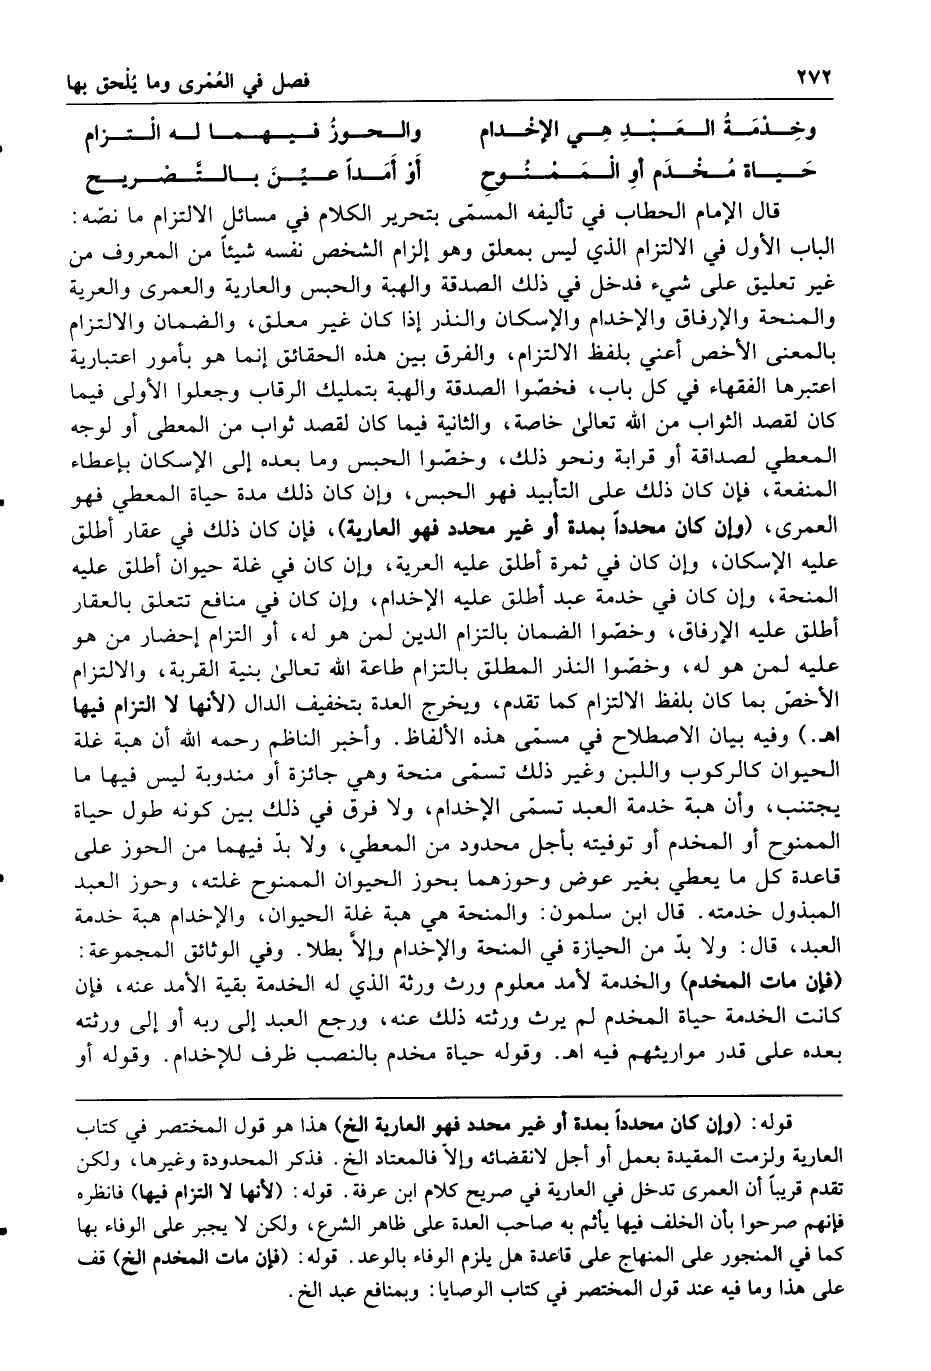 ٢٧٢ فصل في العُمْرى وما يُلْحق بها
وخِـــدْمَـــةُ الـــعَـــبْـــدِ هِـــي الإخْـــدام والـــحـــوزُ فـــيـــهـــمـــا لـــه الْـــتـــزام
حَـــيـــاة مُـــخْـــدَم أوِ الْـــمَـــمْـــنُـــوحِ أَوْ أَمَـــداً عـــيِّـــنَ بـــالـــتَّـــصْـــريـــح
قال الإمام الحطاب في تأليفه المسمّى بتحرير الكلام في مسائل الالتزام ما نصّه:
الباب الأول في الالتزام الذي ليس بمعلق وهو إلزام الشخص نفسه شيئاً من المعروف من
غير تعليق على شيء فدخل في ذلك الصدقة والهبة والحبس والعارية والعمرى والعرية
والمنحة والإرفاق والإخدام والإسكان والنذر إذا كان غير معلق، والضمان والالتزام
بالمعنى الأخص أعني بلفظ الالتزام، والفرق بين هذه الحقائق إنما هو بأمور اعتبارية
اعتبرها الفقهاء في كل باب، فخصّوا الصدقة والهبة بتمليك الرقاب وجعلوا الأولى فيما
كان لقصد الثواب من الله تعالىٰ خاصة، والثانية فيما كان لقصد ثواب من المعطى أو لوجه
المعطي لصداقة أو قرابة ونحو ذلك، وخصّوا الحبس وما بعده إلى الإسكان بإعطاء
المنفعة، فإن كان ذلك على التأبيد فهو الحبس، وإن كان ذلك مدة حياة المعطي فهو
العمرى، (وإن كان محدداً بمدة أو غير محدد فهو العارية)، فإن كان ذلك في عقار أطلق
عليه الإسكان، وإن كان في ثمرة أطلق عليه العرية، وإن كان في غلة حيوان أطلق عليه
المنحة، وإن كان في خدمة عبد أطلق عليه الإخدام، وإن كان في منافع تتعلق بالعقار
أطلق عليه الإرفاق، وخصّوا الضمان بالتزام الدين لمن هو له، أو التزام إحضار من هو
عليه لمن هو له، وخصّوا النذر المطلق بالتزام طاعة الله تعالىٰ بنية القربة، والالتزام
الأخصّ بما كان بلفظ الالتزام كما تقدم، ويخرج العدة بتخفيف الدال (لأنها لا التزام فيها
اهـ.) وفيه بيان الاصطلاح في مسمّى هذه الألفاظ. وأخبر الناظم رحمه الله أن هبة غلة
الحيوان كالركوب واللبن وغير ذلك تسمّى منحة وهي جائزة أو مندوبة ليس فيها ما
يجتنب، وأن هبة خدمة العبد تسمّى الإخدام، ولا فرق في ذلك بين كونه طول حياة
الممنوح أو المخدم أو توفيته بأجل محدود من المعطي، ولا بدّ فيهما من الحوز على
قاعدة كل ما يعطي بغير عوض وحوزهما بحوز الحيوان الممنوح غلته، وحوز العبد
المبذول خدمته. قال ابن سلمون: والمنحة هي هبة غلة الحيوان، والإخدام هبة خدمة
العبد، قال: ولا بدّ من الحيازة في المنحة والإخدام وإلاَّ بطلا. وفي الوثائق المجموعة:
(فإن مات المخدم) والخدمة لأمد معلوم ورث ورثة الذي له الخدمة بقية الأمد عنه، فإن
كانت الخدمة حياة المخدم لم يرث ورثته ذلك عنه، ورجع العبد إلى ربه أو إلى ورثته
بعده على قدر مواريثهم فيه اهـ. وقوله حياة مخدم بالنصب ظرف للإخدام. وقوله أو
قوله: (وإن كان محدداً بمدة أو غير محدد فهو العارية الخ) هذا هو قول المختصر في كتاب
العارية ولزمت المقيدة بعمل أو أجل لانقضائه وإلاّ فالمعتاد الخ. فذكر المحدودة وغيرها، ولكن
تقدم قريباً أن العمرى تدخل في العارية في صريح كلام ابن عرفة. قوله: (لأنها لا التزام فيها) فانظره
فإنهم صرحوا بأن الخلف فيها يأثم به صاحب العدة على ظاهر الشرع، ولكن لا يجبر على الوفاء بها
كما في المنجور على المنهاج على قاعدة هل يلزم الوفاء بالوعد. قوله: (فإن مات المخدم الخ) قف
على هذا وما فيه عند قول المختصر في كتاب الوصايا: وبمنافع عبد الخ.